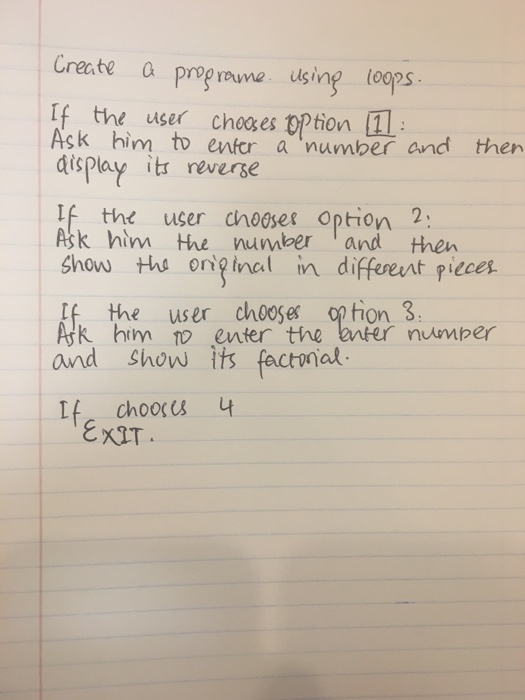 Create a programe. using loops.
If the user chooses option 1:
Ask him to enter a number and then
display its reverse
If the user chooses option 2:
Ask him the number and then
show the original in different pieces
If the user chooses option 3.
Ask him to enter the enter number
and show its factorial.
If chooses 4
EXIT.